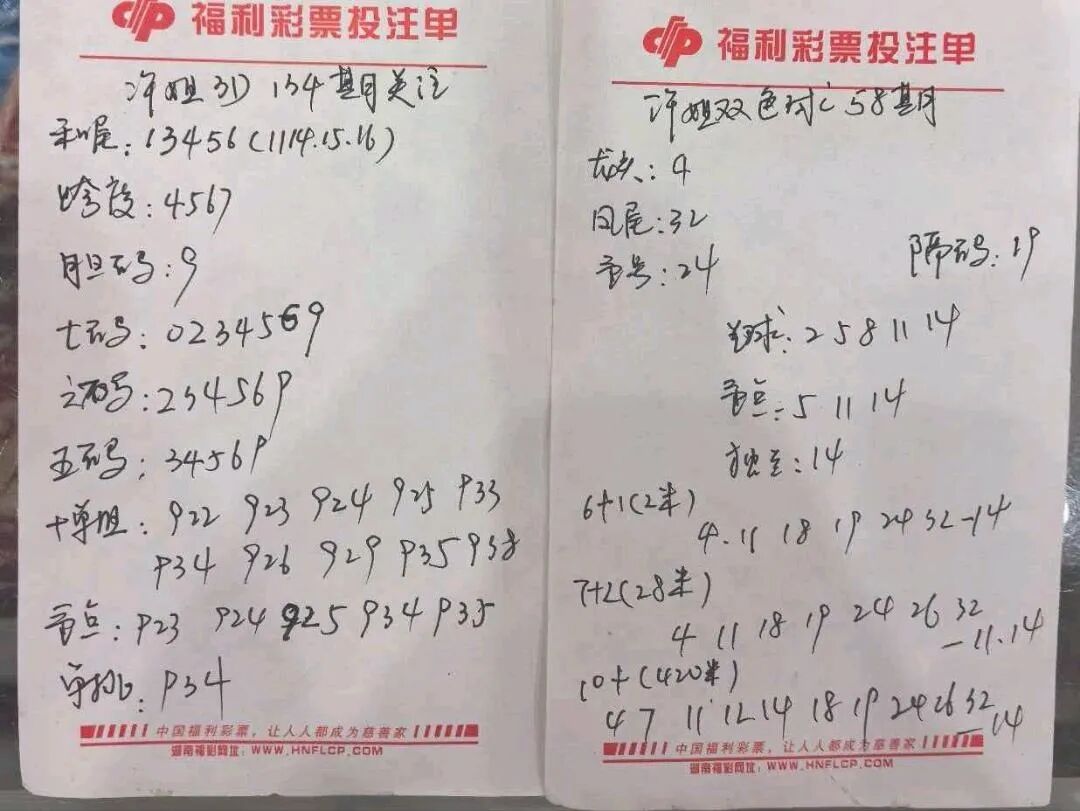 福利彩票投注单
许姐3D 134期关注
和尾:13456(11 14.15.16)
跨度:4567
胆码:9
七码:0234569
六码:234569
五码:34569
十单组:922 923 924 925 933
934 926 929 935 938
重点:923 924 925 934 935
单挑:934
中国福利彩票,让人人都成为慈善家
湖南福彩网址:WWW.HNFLCP.COM
福利彩票投注单
许姐双色球58期
龙头:4
凤尾:32
重号:24
隔码:19
蓝球:2 5 8 11 14
重点:5 11 14
独蓝:14
6+1(2米)
4.11 18 19 24 32-14
7+2(28米)
4 11 18 19 24 26 32
-11.14
10+(420米)
4 7 11 12 14 18 19 24 26 32
-14
中国福利彩票,让人人都成为慈善家
湖南福彩网址:WWW.HNFLCP.COM